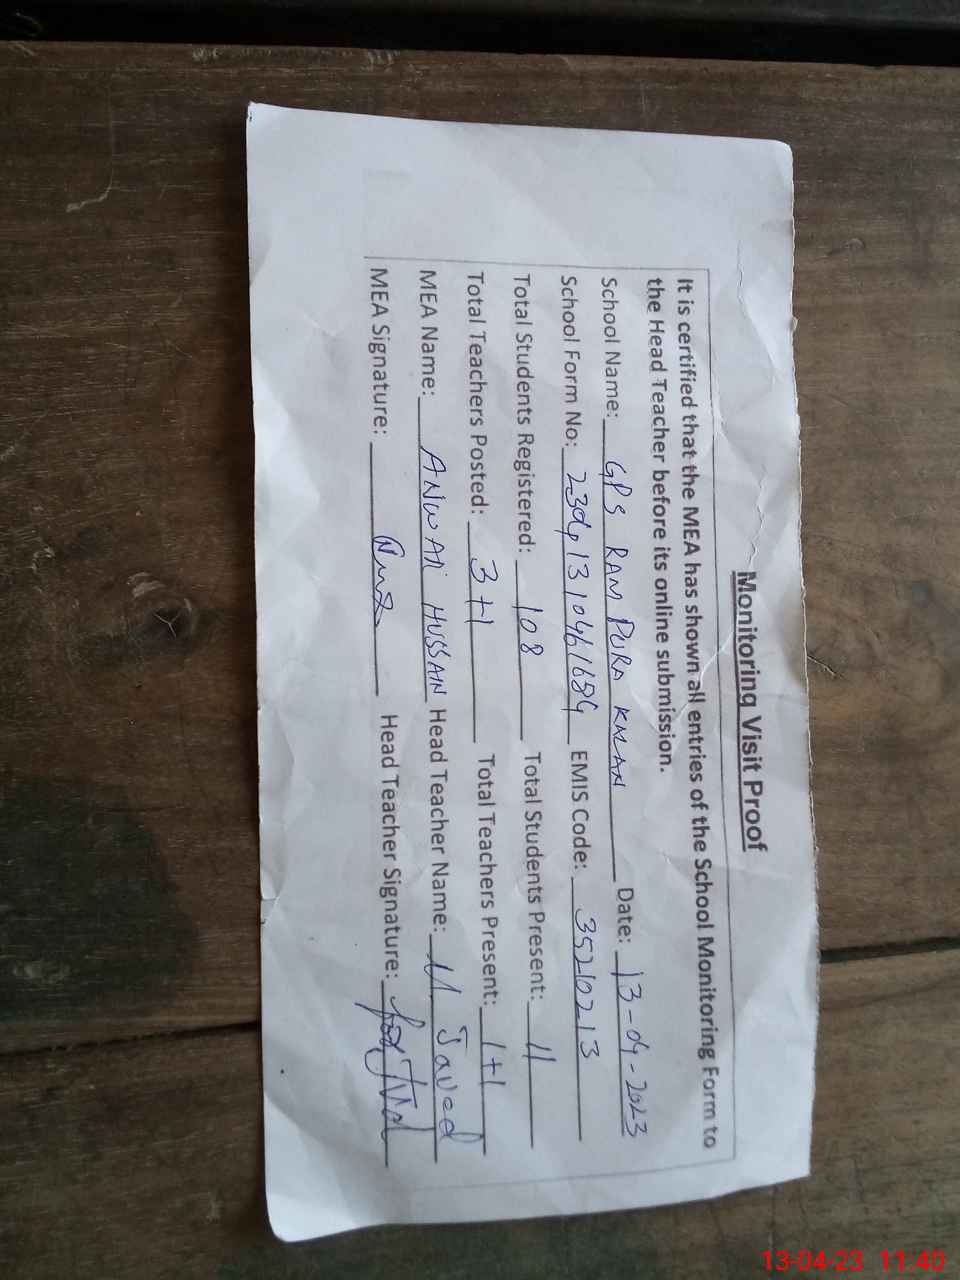 Monitoring Visit Proof
It is certified that the MEA has shown all entries of the School Monitoring Form to
the Head Teacher before its online submission.
School Name: GPS RAM PURA KMAN Date: 13-04-2023
School Form No: EMIS Code: 35210213
Total Students Registered: 108 Total Students Present: 11
Total Teachers Posted: 3+1 Total Teachers Present: 1+1
MEA Name: ANWAR HUSSAIN Head Teacher Name: M. Javed
MEA Signature: Head Teacher Signature:
13-04-23 11:40